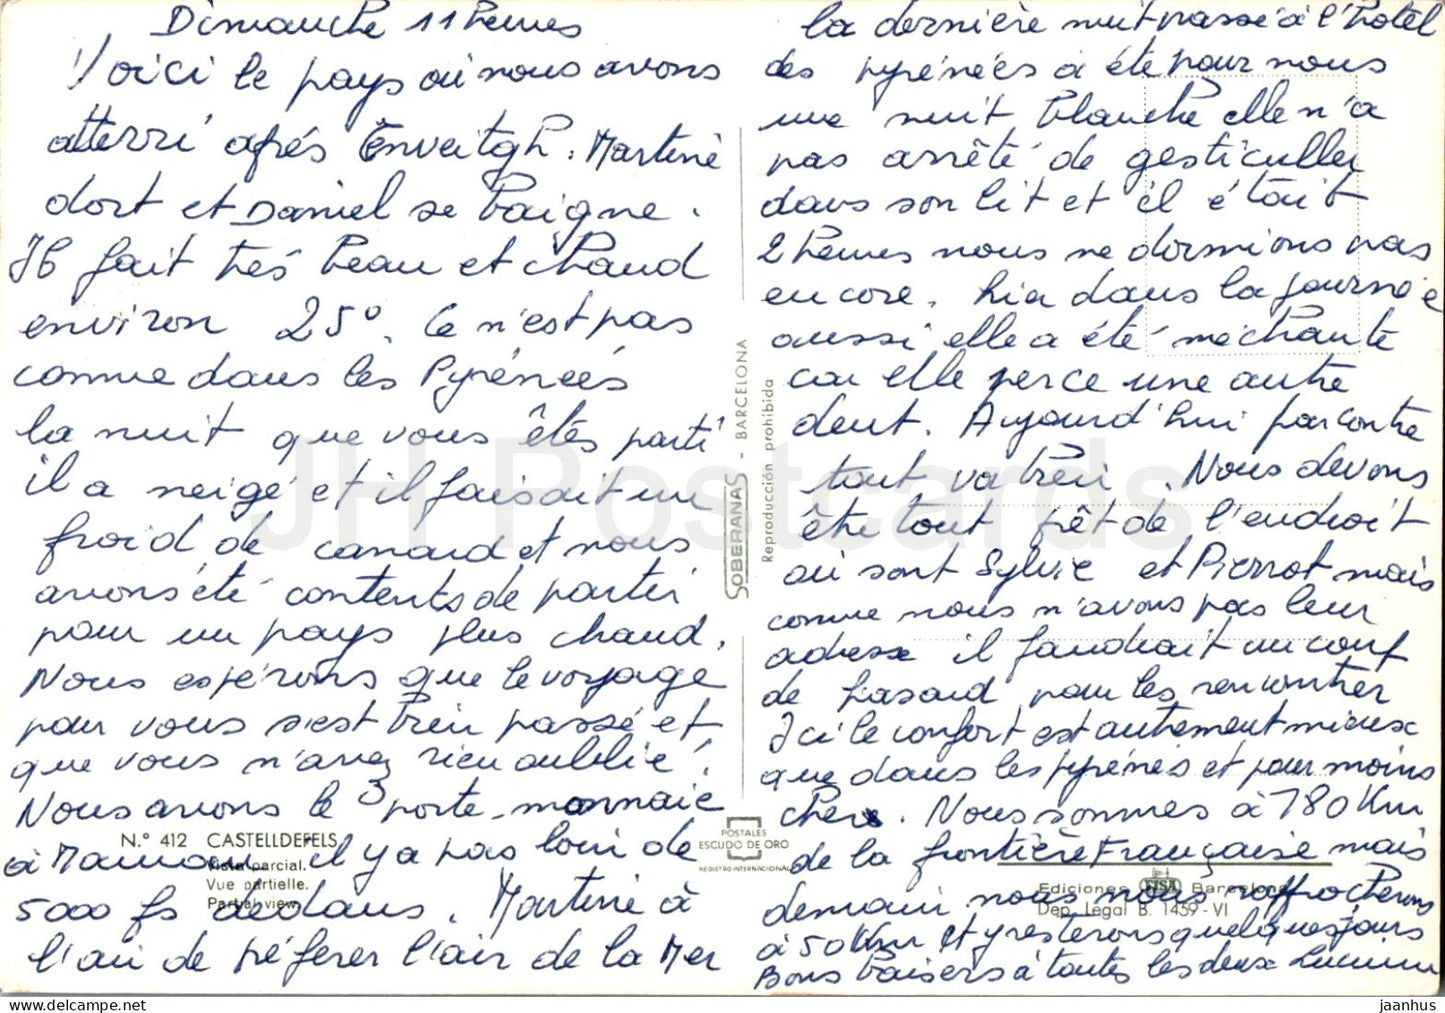 Dimanche 11 heures
Voici le pays où nous avons
atterri après Enveitgh. Martine
dort et Daniel se baigne.
Il fait très beau et chaud
environ 25°. Ce n'est pas
comme dans les Pyrénées
la nuit que vous êtes parti
il a neigé et il faisait un
froid de canard et nous
avons été contents de partir
pour un pays plus chaud.
Nous espérons que le voyage
pour vous s'est bien passé et
que vous n'avez rien oublié !
Nous avons le porte-monnaie
à Maman il y a pas loin de
5000 fs dedans. Martine à
l'air de préférer l'air de la Mer
la dernière nuit passé à l'hotel
des pyrénées a été pour nous
une nuit blanche elle n'a
pas arrêté de gesticuller
dans son lit et il était
2 heures nous ne dormions pas
encore. hier dans la journée
aussi elle a été méchante
car elle perce une autre
dent. Aujourd'hui par contre
tout va bien. Nous devons
être tout prêt de l'endroit
où sont Sylvie et Pierrot mais
comme nous n'avons pas leur
adresse il faudrait un coup
de hasard pour les rencontrer
Ici le confort est autrement mieux
que dans les pyrénées et pour moins
cher. Nous sommes à 180 Km
de la frontière Française mais
demain nous nous rapprocherons
à 50 Km et y resterons quelques jours
Bons baisers à toutes les deux Lucienne
N.° 412 CASTELLDEFELS
Vista parcial.
Vue partielle.
Partial view.
SOBERANAS - BARCELONA
Reproducción prohibida
POSTALES
ESCUDO DE ORO
REGISTRO INTERNACIONAL
Ediciones FISA Barcelona
Dep. Legal B. 1459 - VI
JH Postcards
jaanhus